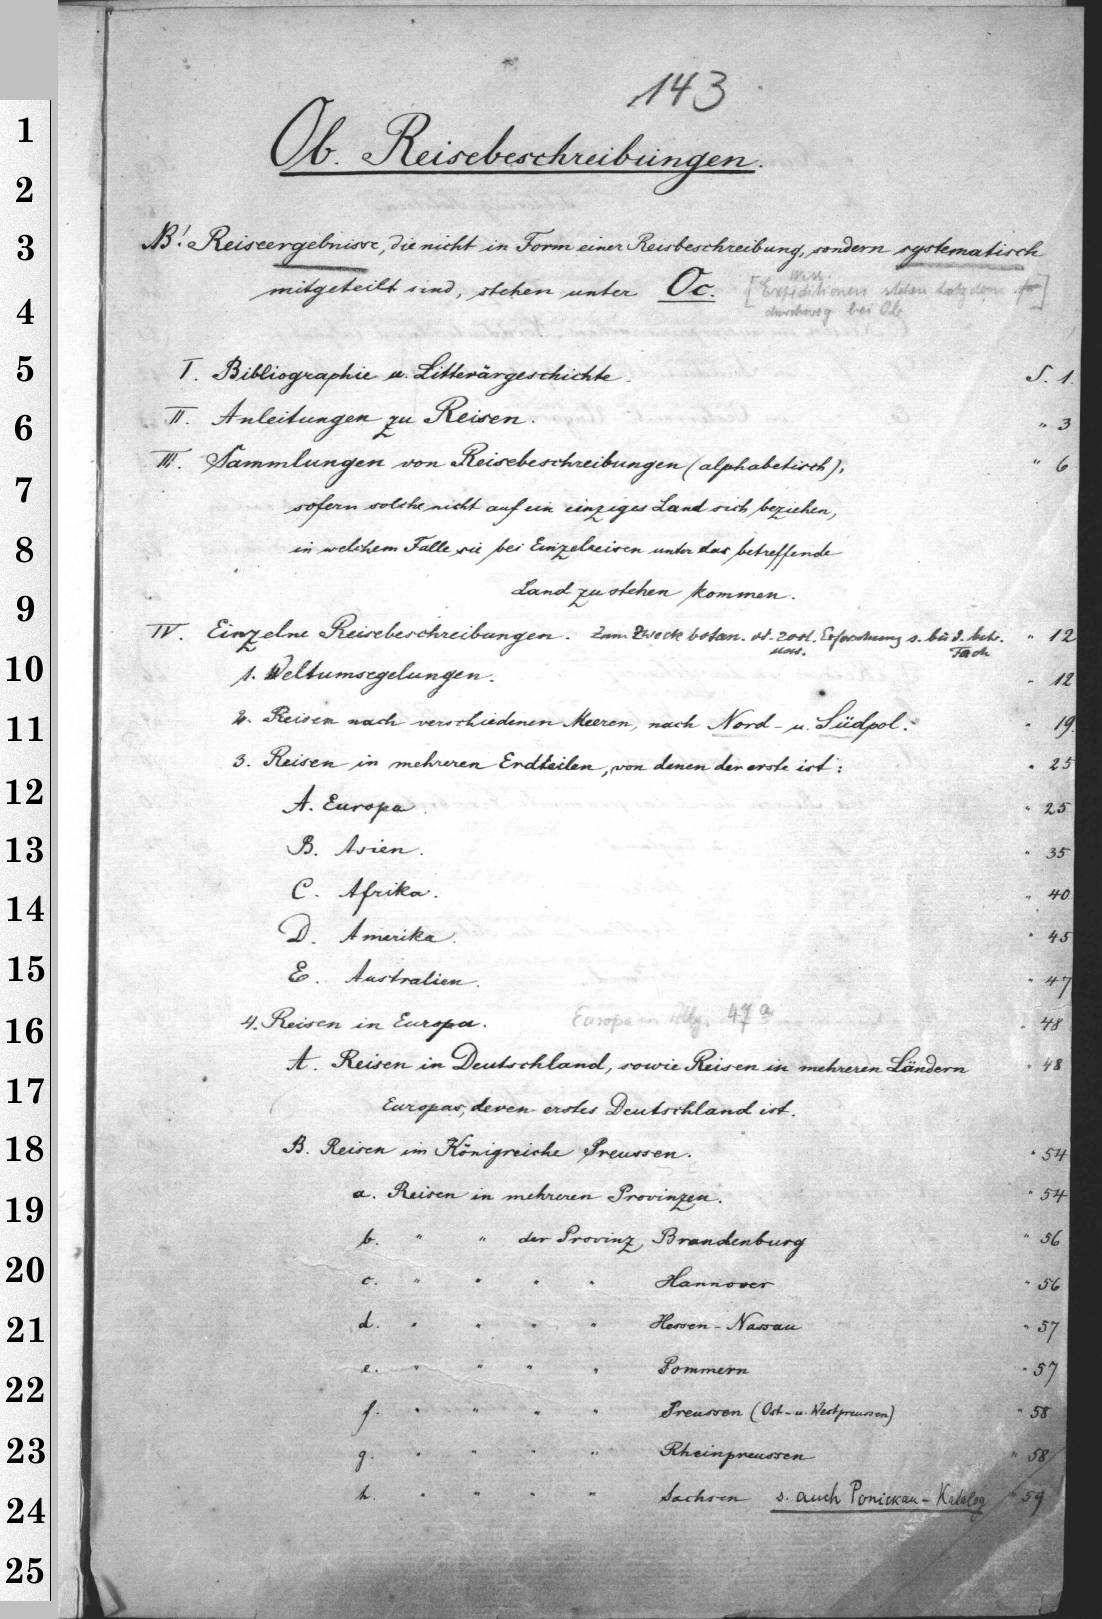 143
Ob. Reisebeschreibungen.
NB! Reiseergebnisse, die nicht in Form einer Reisbeschreibung, sondern systematisch
mitgeteilt sind, stehen unter Oc. [Wiss. Expeditionen stehen trotzdem
durchweg bei Ob]
I. Bibliographie u. Litterärgeschichte. S. 1.
II. Anleitungen zu Reisen. " 3
III. Sammlungen von Reisebeschreibungen (alphabetisch), " 6
sofern solche nicht auf ein einziges Land sich beziehen,
in welchem Falle sie bei Einzelreisen unter das betreffende
Land zu stehen kommen.
IV. Einzelne Reisebeschreibungen. Zum Zweck botan. od. zool. Erforschung s. bei d. betr. " 12
usw. Fach
1. Weltumsegelungen. " 12
2. Reisen nach verschiedenen Meeren, nach Nord- u. Südpol. " 19.
3. Reisen in mehreren Erdteilen, von denen der erste ist: " 25
A. Europa. " 25
B. Asien. " 35
C. Afrika. " 40
D. Amerika. " 45
E. Australien. " 47
4. Reisen in Europa. Europa im Allg. 47a " 48
A. Reisen in Deutschland, sowie Reisen in mehreren Ländern " 48
Europas, deren erstes Deutschland ist.
B. Reisen im Königreiche Preussen. " 54
a. Reisen in mehreren Provinzen. " 54
b. " " der Provinz Brandenburg " 56
c. " " " " Hannover " 56
d. " " " " Hessen-Nassau " 57
e. " " " " Pommern " 57
f. " " " " Preussen (Ost- u. Westpreussen) " 58
g. " " " " Rheinpreussen " 58
h. " " " " Sachsen s. auch Ponickau-Katalog " 59
1
2
3
4
5
6
7
8
9
10
11
12
13
14
15
16
17
18
19
20
21
22
23
24
25